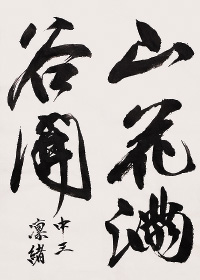 山花満
谷開
中三
凛緒